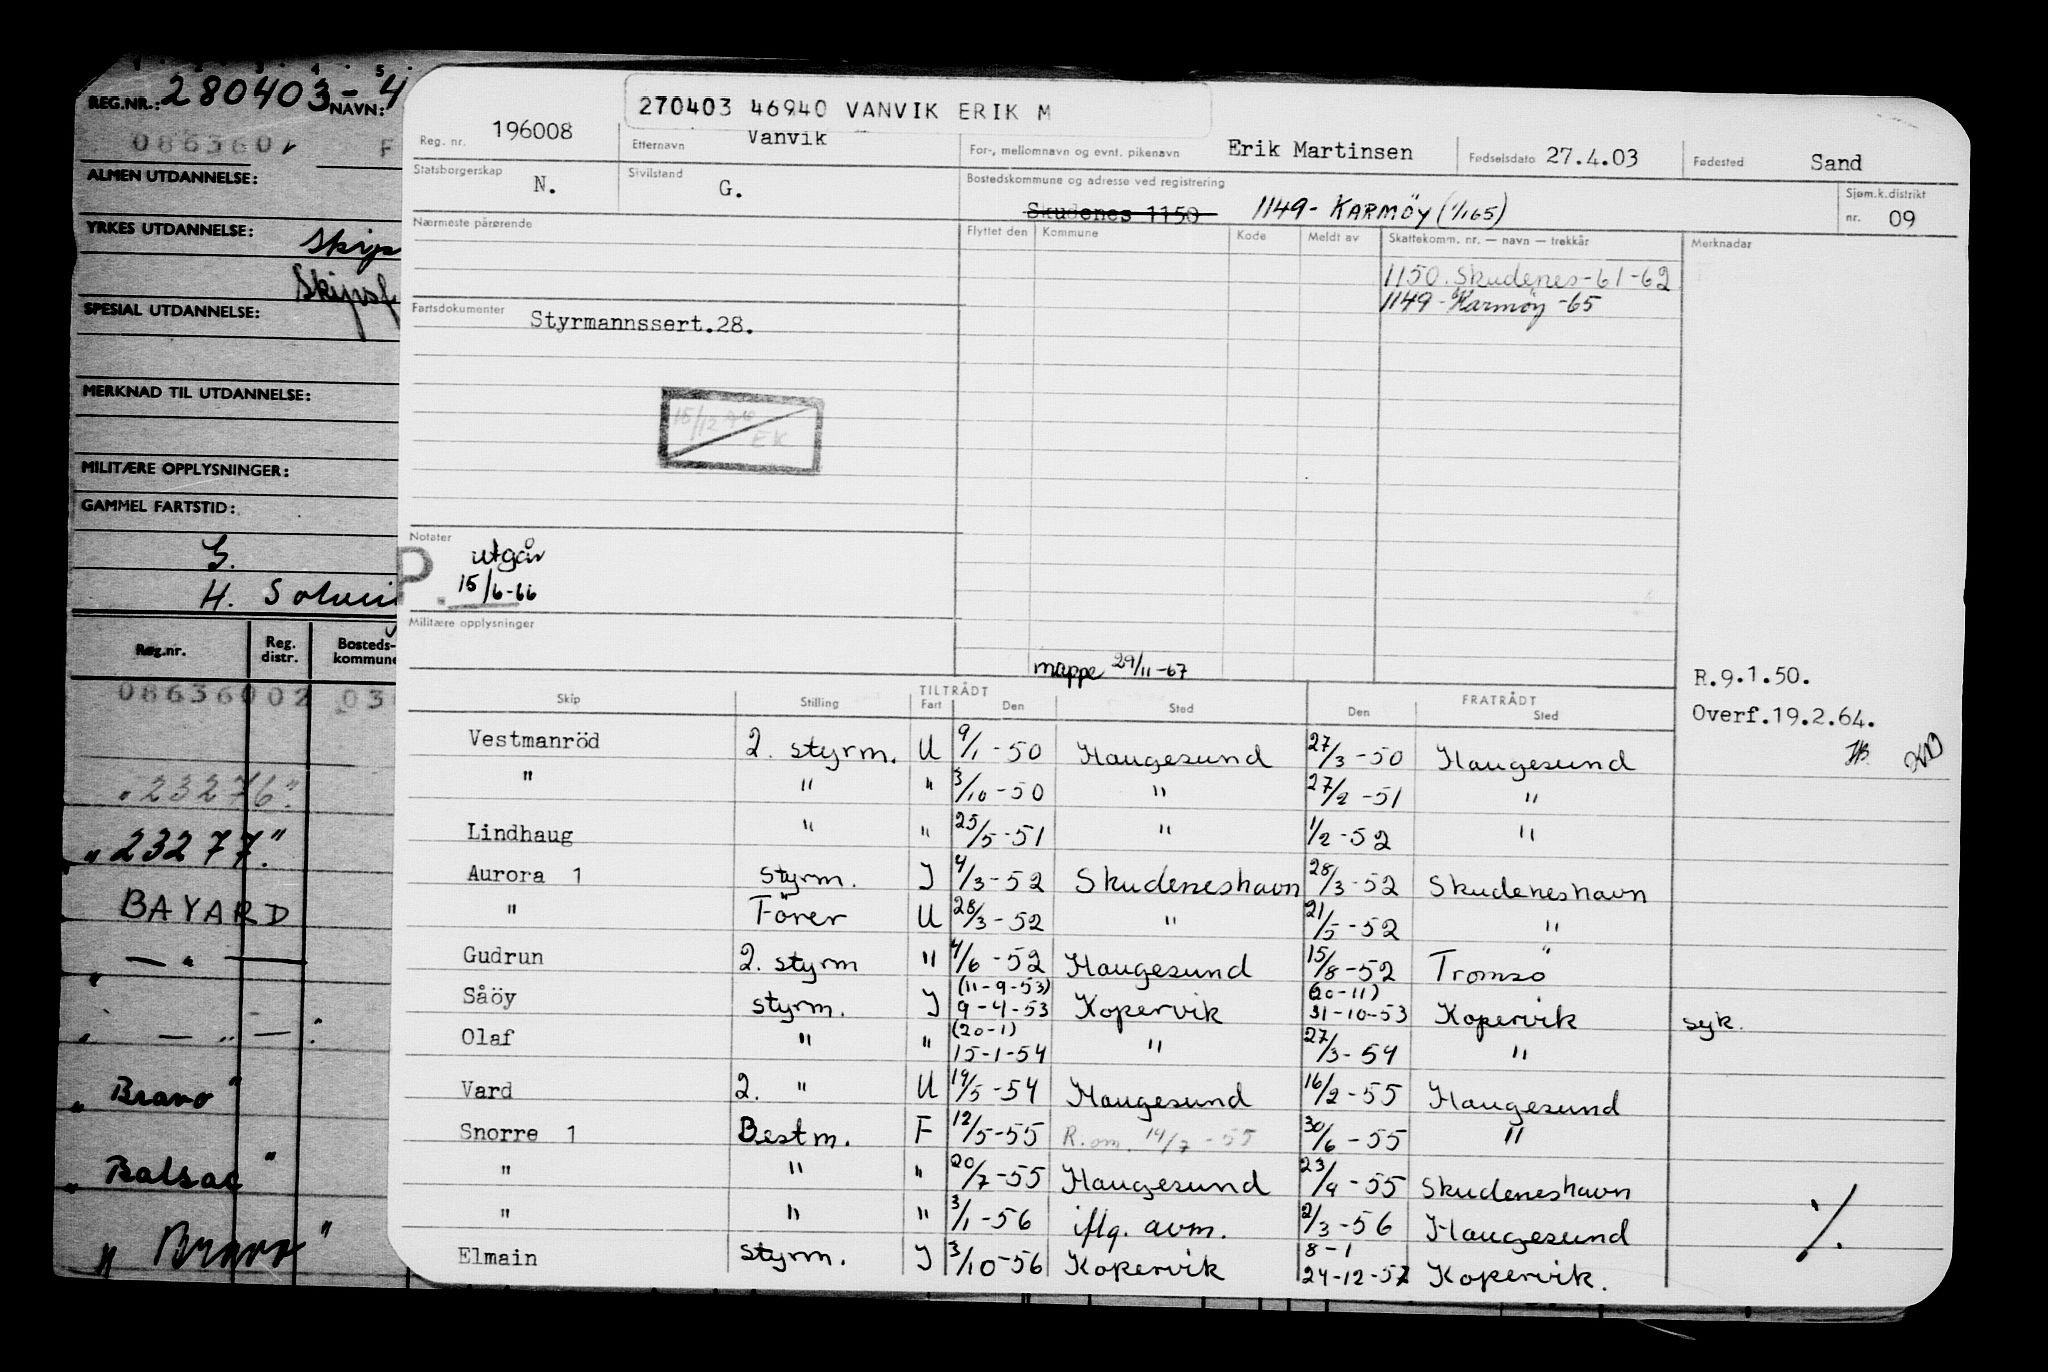 REG.NR.: 280403-4 NAVN:
0863601 F
ALMEN UTDANNELSE:
YRKES UTDANNELSE: Skips
SPESIAL UTDANNELSE:
MERKNAD TIL UTDANNELSE:
MILITÆRE OPPLYSNINGER:
GAMMEL FARTSTID:
G.
H.
Reg.nr. Reg. distr. Bosteds-kommune
08636002 03
"23276."
"23277."
BAYARD
" — " —
" — " — :
" Bravo "
" Balsac "
" Bravo "
270403 46940 VANVIK ERIK M
Reg. nr. 196008 Etternavn Vanvik For-, mellomnavn og evnt. pikenavn Erik Martinsen Fødselsdato 27.4.03 Fødested Sand
Statsborgerskap N. Sivilstand G. Bostedskommune og adresse ved registrering Skudenes 1150 1149- KARMÖY (1/1 65) Sjøm.k.distrikt nr. 09
Nærmeste pårørende Flyttet den Kommune Kode Meldt av Skattekomm. nr. — navn — trekkår Merknadar
1150. Skudenes-61-62
1149 - Karmöy -65
Fartsdokumenter Styrmannssert.28.
15/12 76
EK
Notater
P utgår
15/6-66
Militære opplysninger
mappe 29/11-67
R.9.1.50.
Overf.19.2.64.
Skip Stilling TILTRÅDT Fart Den Sted FRATRÅDT Den Sted
Vestmanröd 2. styrm. U 9/1-50 Haugesund 27/3-50 Haugesund
" " " 3/10-50 " 27/2-51 "
Lindhaug " " 25/5-51 " 1/2-52 "
Aurora 1 styrm. I 4/3-52 Skudeneshavn 28/3-52 Skudeneshavn
" Förer U 28/3-52 " 21/5-52 "
Gudrun 2. styrm " 4/6-52 Haugesund 15/8-52 Tromsö
Såöy styrm. I (11-9-53) 9-4-53 Kopervik (20-11) 31-10-53 Kopervik syk.
Olaf " " (20-1) 15-1-54 " 27/3-54 "
Vard 2. " U 19/5-54 Haugesund 16/2-55 Haugesund
Snorre 1 Bestm. F 12/5-55 R.om. 14/7-55 30/6-55 "
" " " 20/7-55 Haugesund 23/9-55 Skudeneshavn
" " " 3/1-56 iflg. avm. 2/3-56 Haugesund
Elmain styrm. I 3/10-56 Kopervik 8-1 24-12-57 Kopervik.